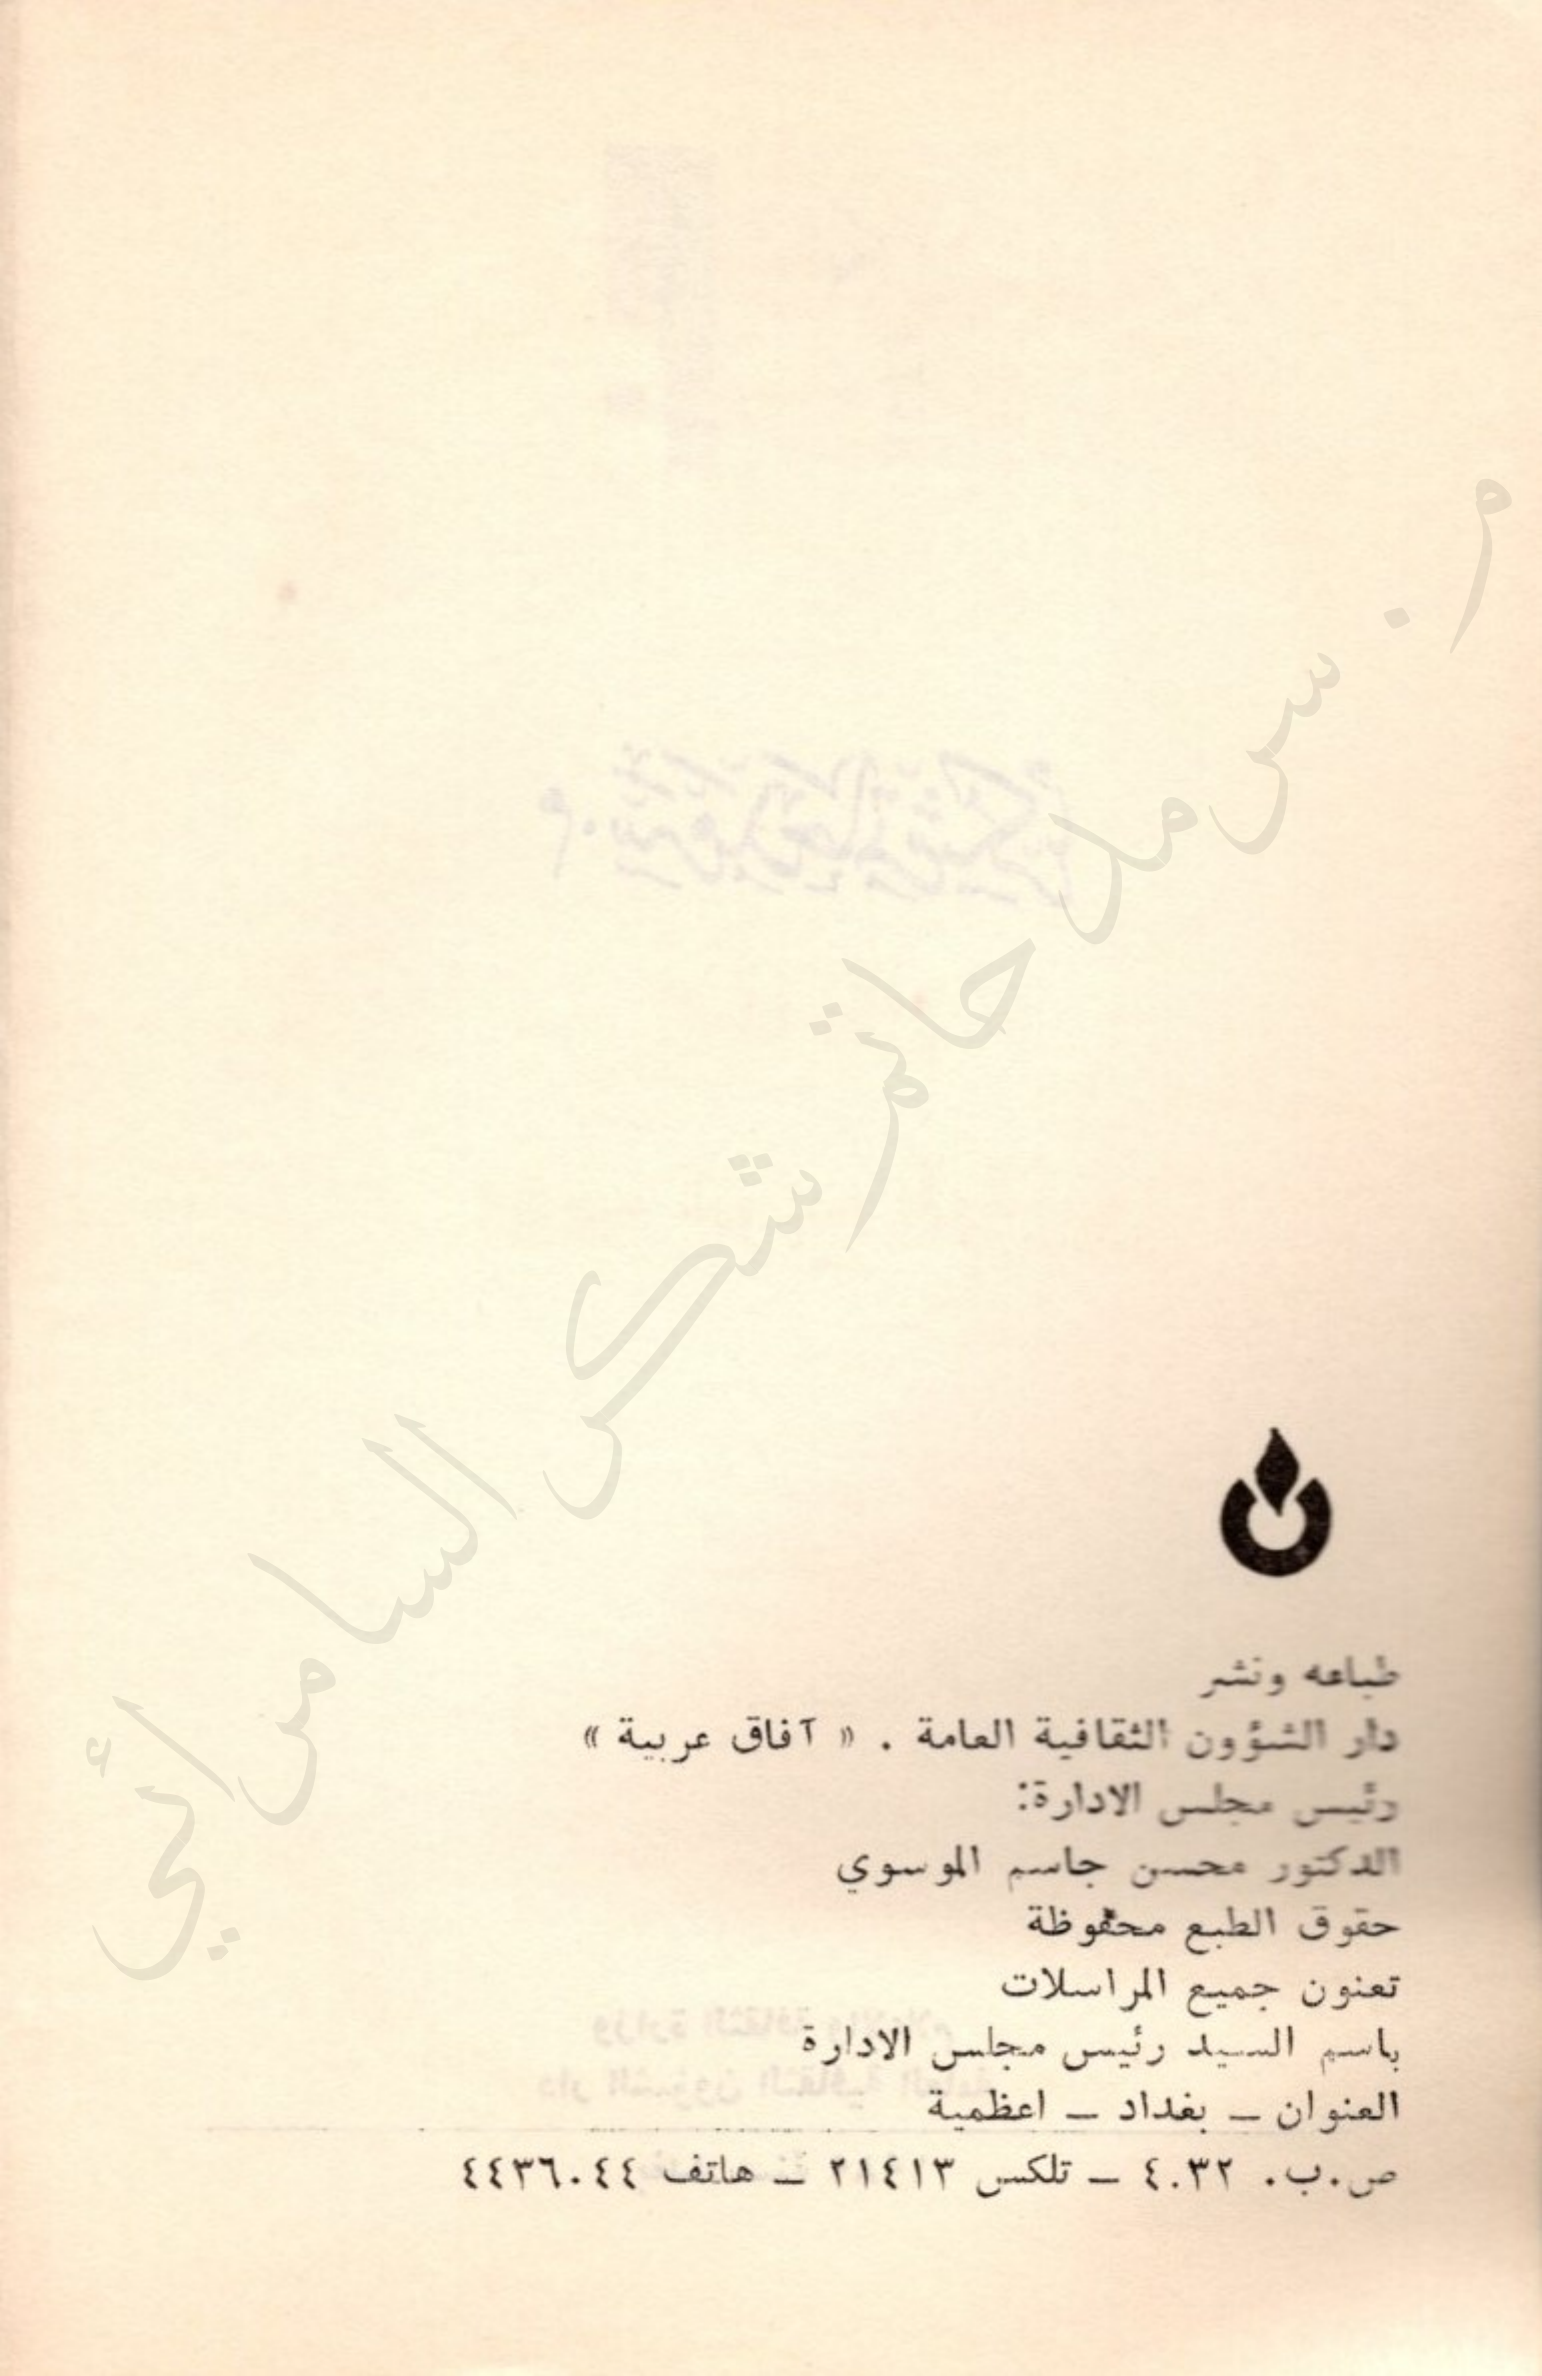 م . سرمد حاتم شكر السامرائي
طباعه ونشر
دار الشؤون الثقافية العامة . « آفاق عربية »
رئيس مجلس الادارة:
الدكتور محسن جاسم الموسوي
حقوق الطبع محفوظة
تعنون جميع المراسلات
باسم السيد رئيس مجلس الادارة
العنوان ـ بغداد ـ اعظمية
ص.ب. ٤٠٣٢ ـ تلكس ٢١٤١٣ ـ هاتف ٤٤٣٦٠٤٤